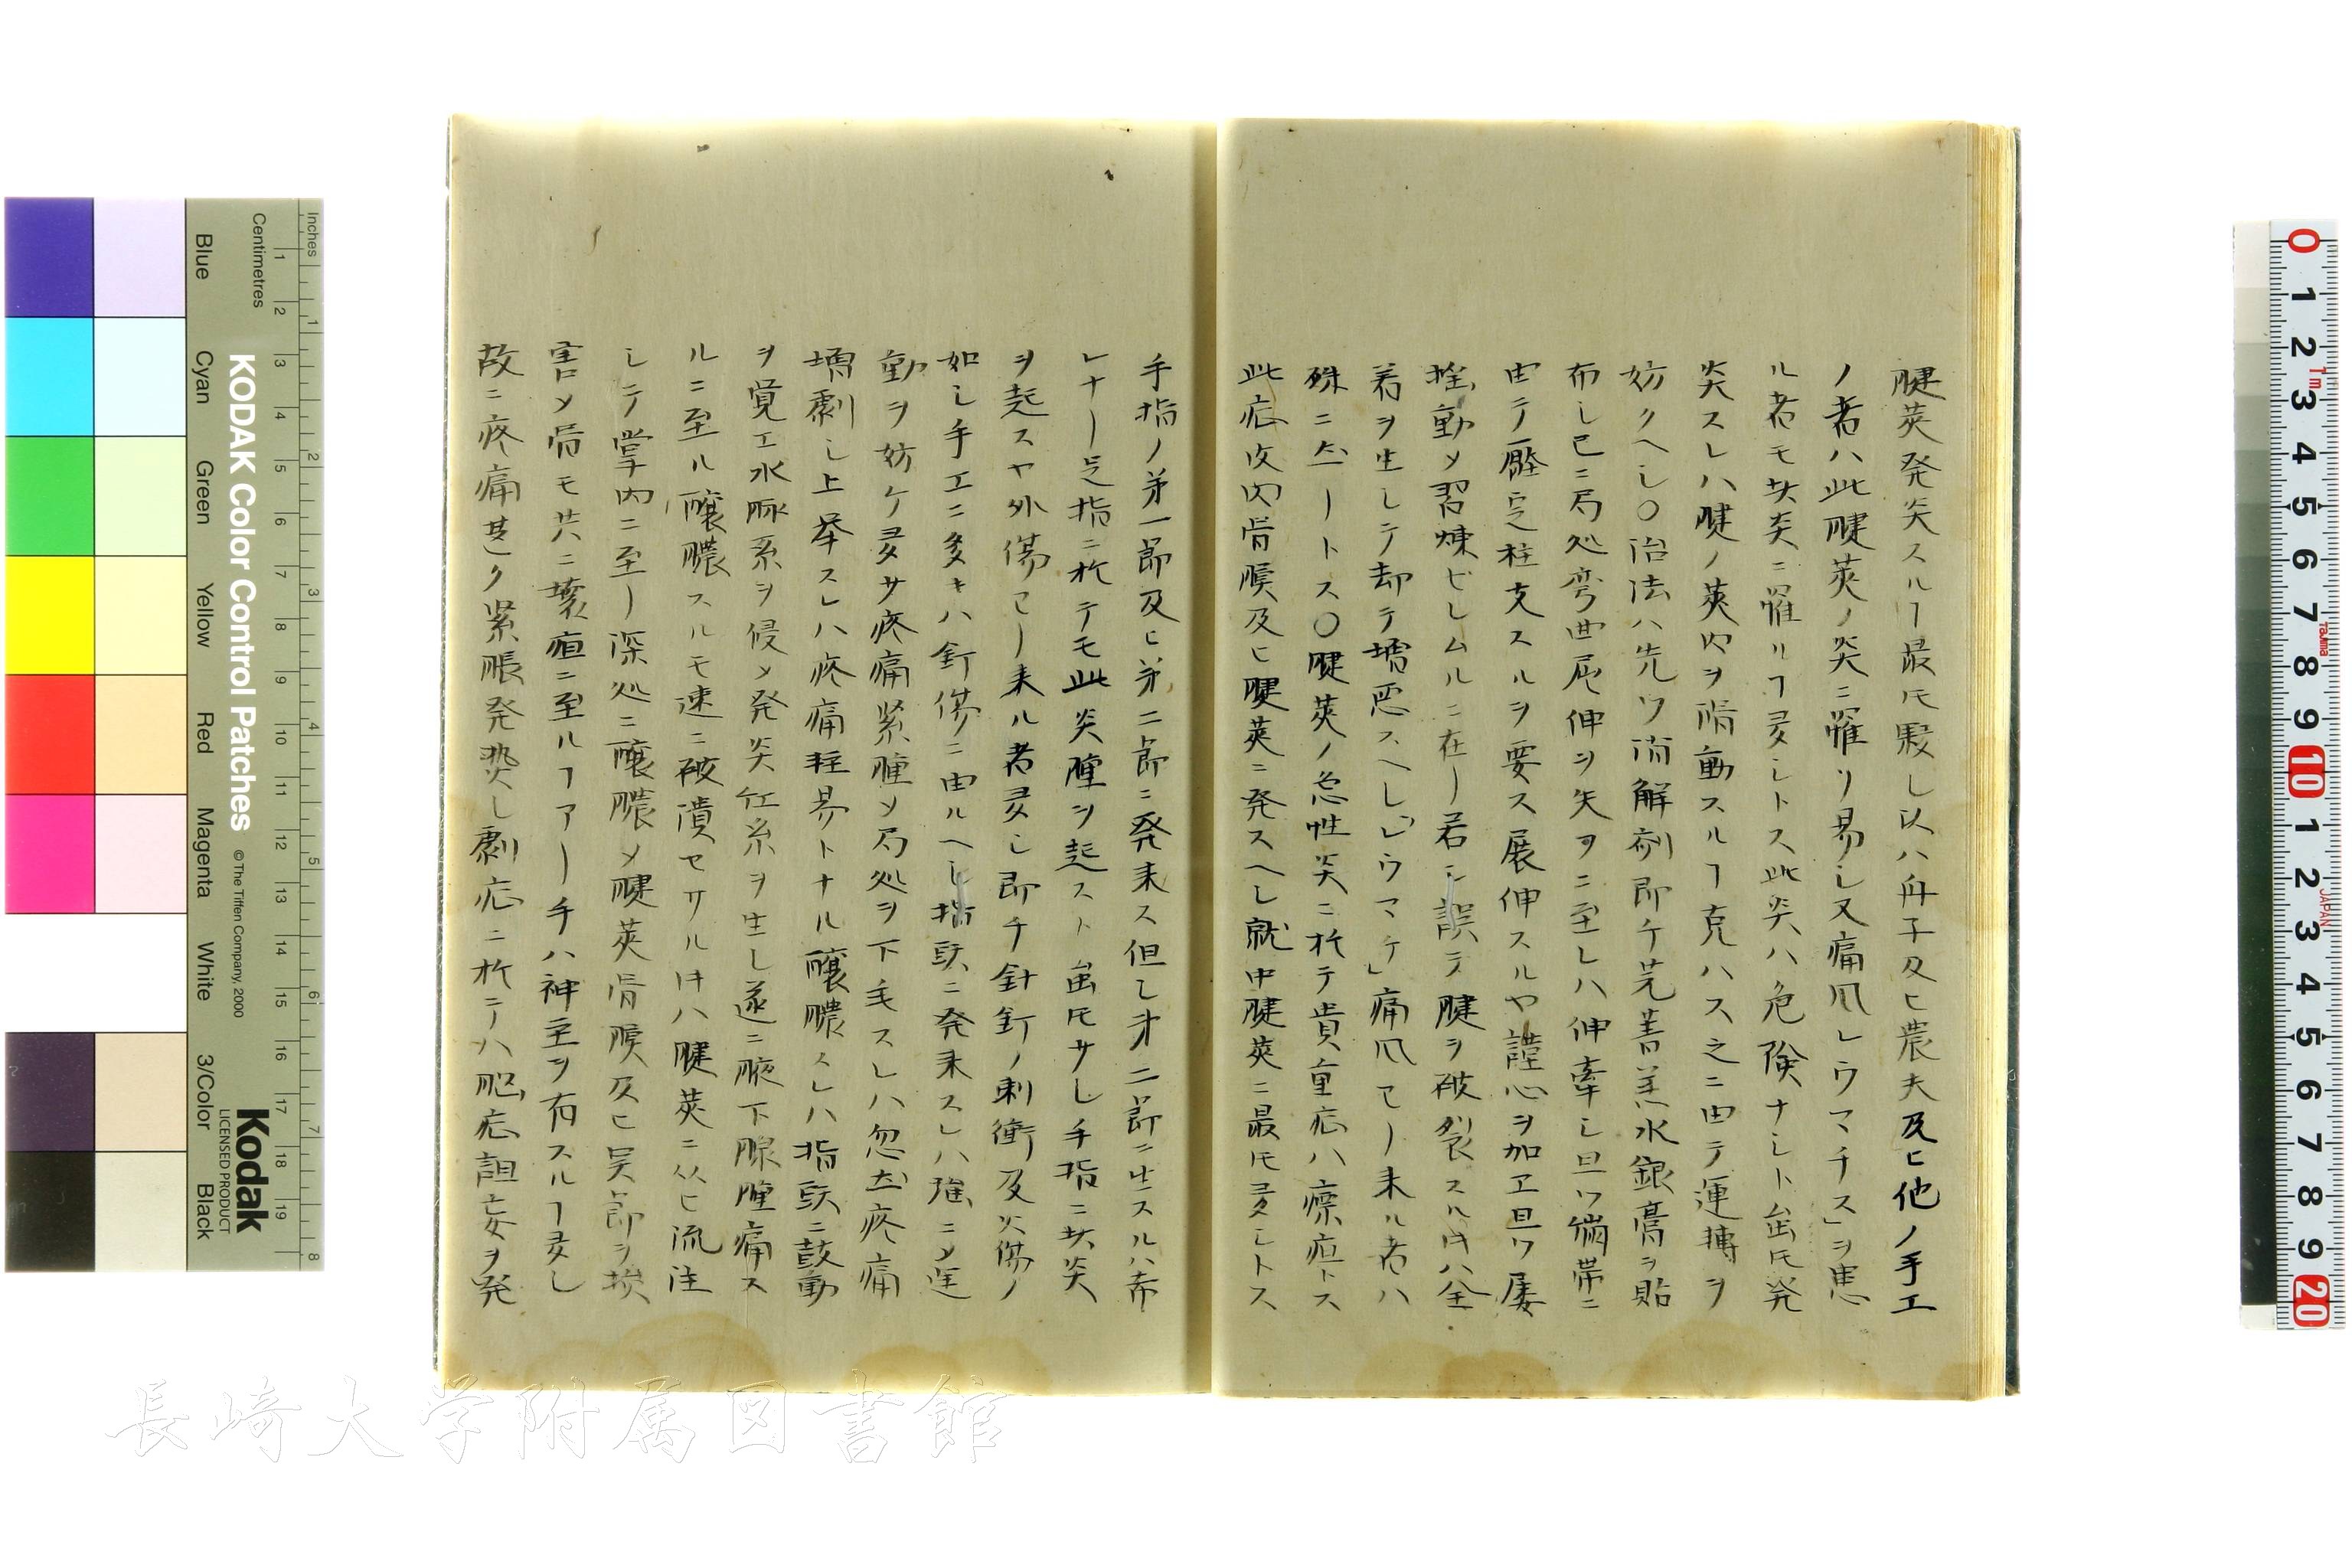 腱莢発炎スルヿ最モ多シ以ハ舟子及ヒ農夫及ヒ他ノ手工
ノ者ハ此腱莢ノ炎ニ罹リ易シ又痛風レウマチス」ヲ患
ル者モ其炎ニ罹ルヿ多シトス此炎ハ危険ナシト雖𪜈発
炎スレハ腱ノ莢内ヲ滑動スルヿ克ハス之ニ由テ運搏ヲ
妨クヘシ〇治法ハ先ツ消解剤即チ芫菁羔水銀膏ヲ貼
布シ已ニ局処弯曲屈伸ヲ失フニ至レハ伸牽シ且ツ繃帯ニ
由テ壓定柱支スルヲ要ス展伸スルヤ謹心ヲ加エ且ツ屡
揺動メ習煉セシムルニ在リ若シ誤テ腱ヲ破裂スル𪜈ハ全
着ヲ生シテ却テ増悪スヘシ「レウマチ」痛風ヨリ来ル者ハ
殊ニ然リトス〇腱莢ノ急性炎ニ於テ貴重症ハ瘭疽トス
此症皮肉骨膜及ヒ腱莢ニ発スヘシ就中腱莢ニ最モ多シトス
手指ノ第一節及ヒ第二節ニ発来ス但シ第二節ニ生スルハ希
レナリ足指ニ於テモ此炎腫ヲ起スト雖𪜈少シ手指ニ其炎
ヲ起スヤ外傷ヨリ来ル者多シ即チ針釘ノ刺衝及火傷ノ
如シ手工ニ多キハ釘傷ニ由ルヘシ指頭ニ発来スレハ強ニメ運
動ヲ妨ケ多少疼痛緊腫メ局処ヲ下垂スレハ忽然疼痛
増劇シ上挙スレハ疼痛軽易トナル醸膿スレハ指頭ニ鼓動
ヲ覚エ水脈系ヲ侵メ発炎紅糸ヲ生シ遂ニ腋下腺腫痛ス
ルニ至ル醸膿スルモ速ニ破潰セサルトキハ腱莢ニ従ヒ流注
シテ掌内ニ至リ深処ニ醸膿メ腱莢骨膜及ヒ関節ヲ損
害メ骨モ共ニ壊疽ニ至ルヿアリ手ハ神圣ヲ有スルヿ多シ
故ニ疼痛甚タク緊脹発熱シ劇症ニ於テハ脳症譫妄ヲ発
長崎大学附属図書館
KODAK Color Control Patches
© The Tiffen Company, 2000
Kodak
LICENSED PRODUCT
Inches
Centimetres
Blue
Cyan
Green
Yellow
Red
Magenta
White
3/Color
Black